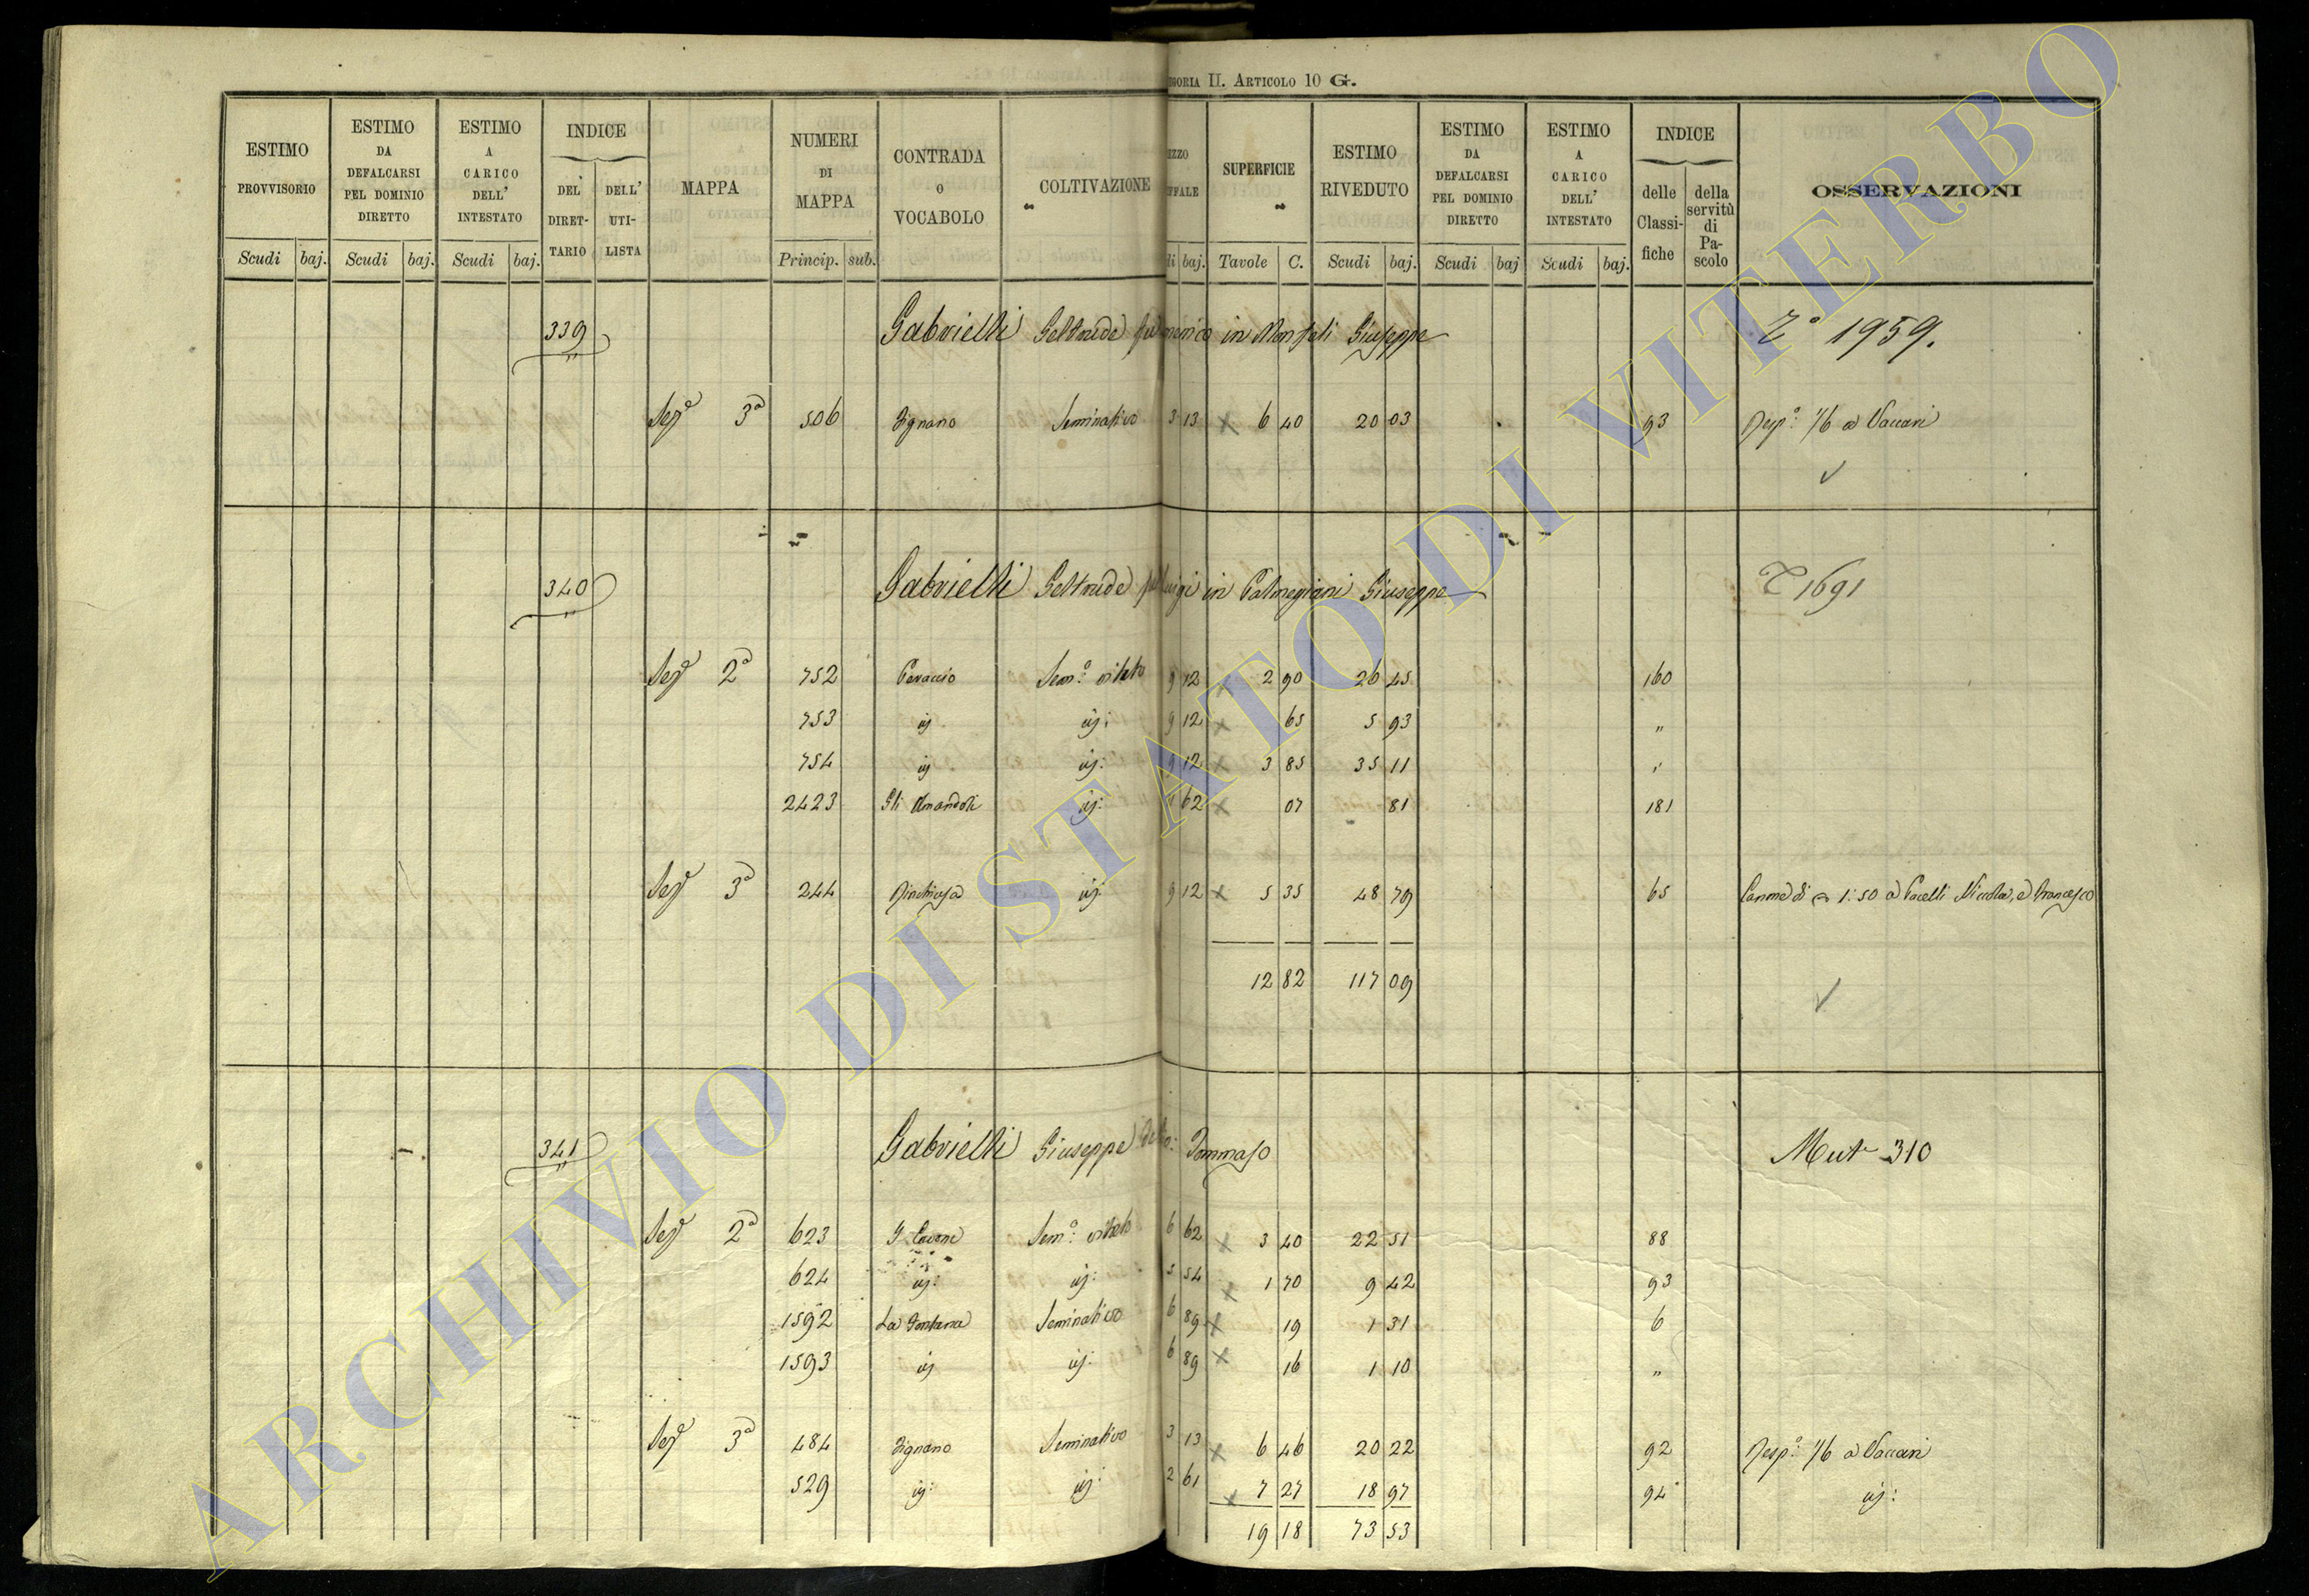 EGORIA II. ARTICOLO 10 G.
ESTIMO PROVVISORIO
ESTIMO DA DEFALCARSI PEL DOMINIO DIRETTO
ESTIMO A CARICO DELL' INTESTATO
INDICE
DEL DIRET- TARIO
DELL' UTI- LISTA
MAPPA
NUMERI DI MAPPA
CONTRADA O VOCABOLO
COLTIVAZIONE
SUPERFICIE
ESTIMO RIVEDUTO
ESTIMO DA DEFALCARSI PEL DOMINIO DIRETTO
ESTIMO A CARICO DELL' INTESTATO
INDICE
delle Classi- fiche
della servitù di Pa- scolo
OSSERVAZIONI
Scudi baj. Scudi baj. Scudi baj. Princip. sub. di baj. Tavole C. Scudi baj. Scudi baj Scudi baj.
339 Gabrielli Geltrude in Giuseppe 1959.
Sezᵉ 3ª 506 Fignano Seminativo 3 13 6 40 20 03 93 Resp: 1/6 a Vaccari
340 Gabrielli Geltrude in Palmegiani Giuseppe 1691
Sezᵉ 2ª 752 Sem:º vitato 9 12 2 90 26 45 160
753 id 9 12 65 5 93 "
754 id 9 12 3 85 35 11
2423 Gli id: 62 07 81 181
Sezᵉ 3ª 244 Rinchiusa id 9 12 5 35 48 79 65 Canone di 1:50 a Pacelli Niccola, e Francesco
12 82 117 09
341 Gabrielli Giuseppe Tommaso Mut 310
Sezᵉ 2ª 623 Sem:º vitato 6 62 3 40 22 51 88
624 id: id: 5 54 1 70 9 42 93
1592 La Fontana Seminativo 6 89 19 1 31 6
1593 id id: 6 89 16 1 10 "
Sezᵉ 3ª 484 Fignano Seminativo 3 13 6 46 20 22 92 Resp: 1/6 a Vaccari
529 id: id: 2 61 7 27 18 97 94 id:
19 18 73 53
ARCHIVIO DI STATO DI VITERBO